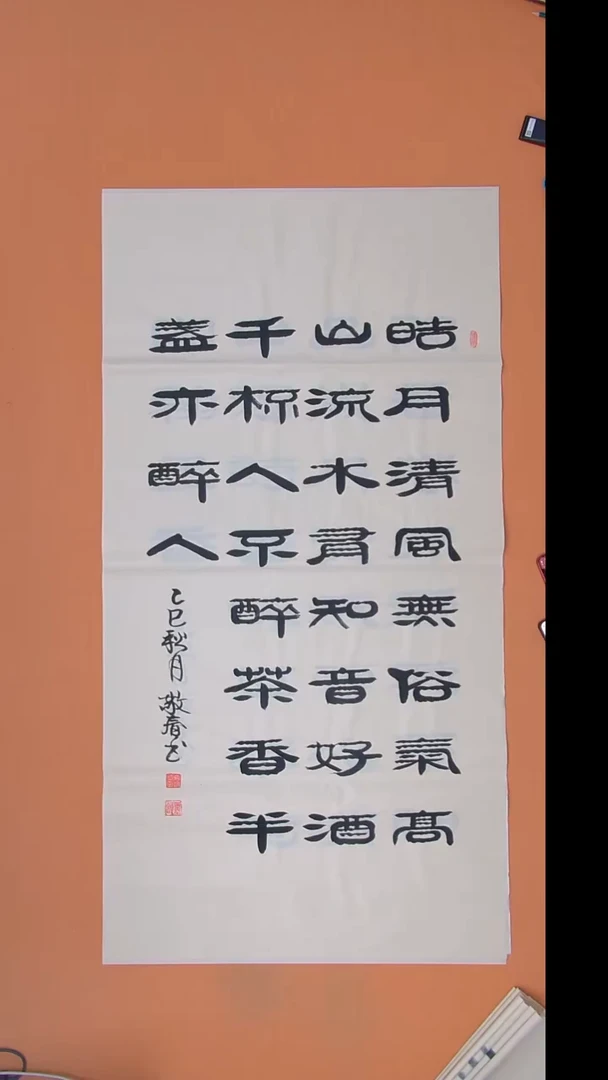 皓月清風無俗氣高
山流水有知音好酒
千杯人不醉茶香半
盞亦醉人
乙巳秋月 敬春书